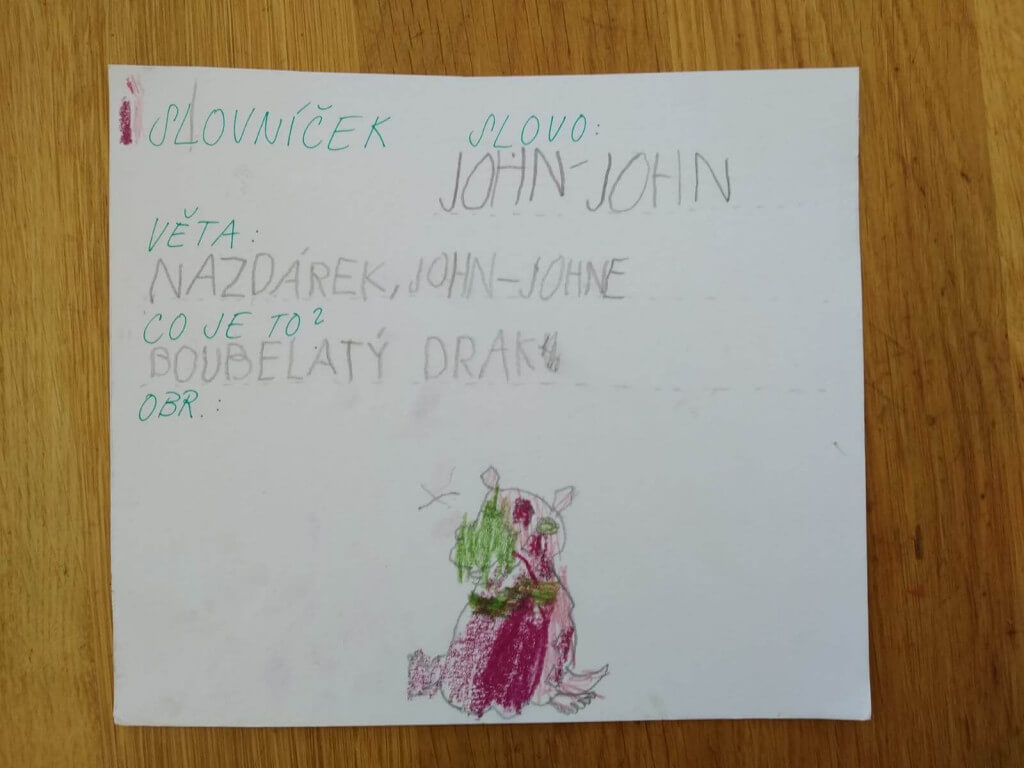 SLOVNÍČEK SLOVO:
JOHN-JOHN
VĚTA:
NAZDÁREK, JOHN-JOHNE
CO JE TO?
BOUBELATÝ DRAK
OBR.: